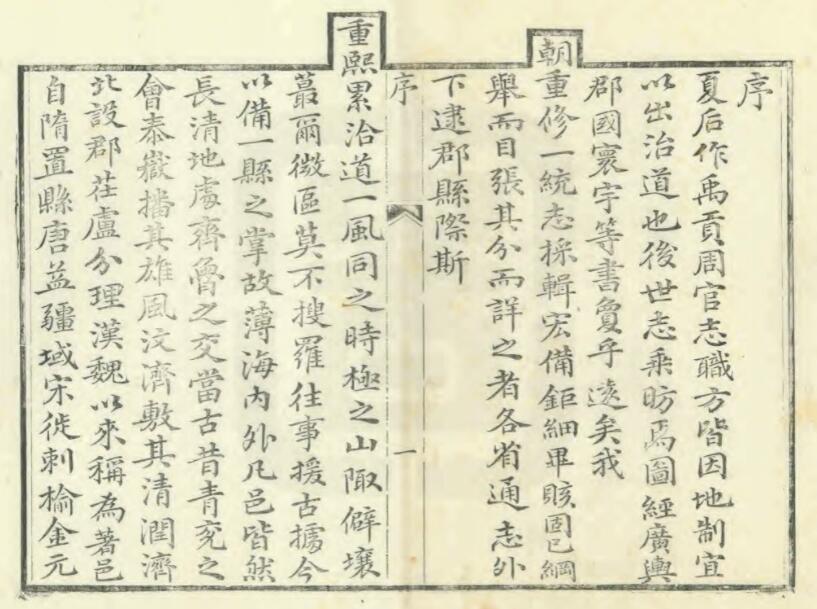 序
夏后作禹貢周官志職方皆因地制宜
以出治道也後世志乘昉焉圖經廣輿
郡國寰宇等書敻乎遠矣我
朝重修一統志採輯宏備鉅細畢賅固已綱
舉而目張其分而詳之者各省通志外
下逮郡縣際斯
序
一
重熙累洽道一風同之時極之山陬僻壤
蕞爾微區莫不搜羅往事援古據今
以備一縣之掌故薄海內外凡邑皆然
長清地處齊魯之交當古昔青兗之
會泰嶽播其雄風汶濟敷其清潤濟
北設郡茌盧分理漢魏以來稱為著邑
自隋置縣唐益疆域宋徙刺榆金元